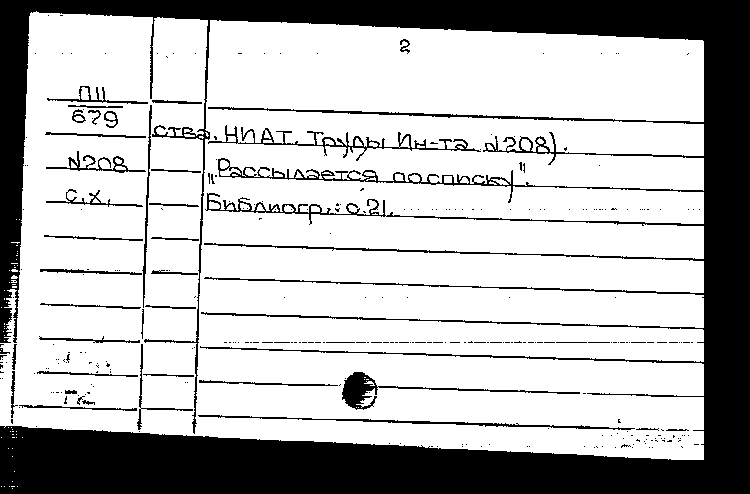 2
ПII
679
ства. НИАТ. Труды Ин-та. №208).
№208
"Рассылается по списку".
с.х.
Библиогр.: с.21.
ГК